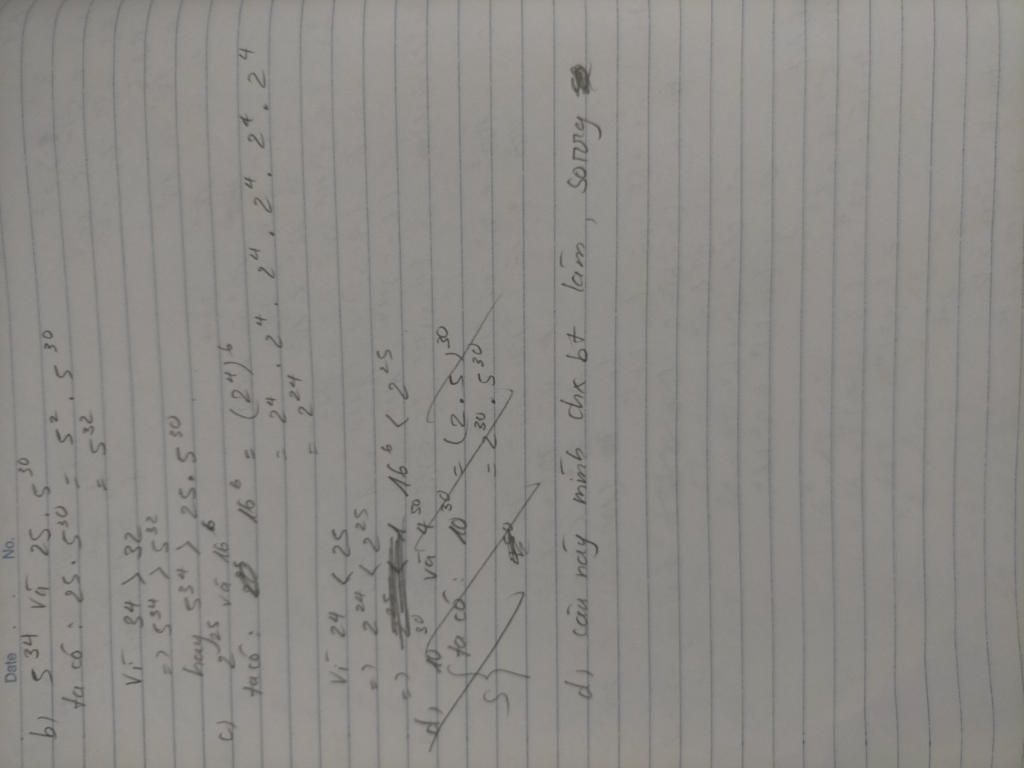 Date . . No.
b) 5^34 và 25.5^30
ta có: 25.5^30 = 5^2.5^30
= 5^32
Vì 34 > 32
=> 5^34 > 5^32
hay 5^34 > 25.5^30
c) 2^25 và 16^6
ta có: 16^6 = (2^4)^6
= 2^4.2^4.2^4.2^4.2^4.2^4
= 2^24
Vì 24 < 25
=> 2^24 < 2^25
=> 16^6 < 2^25
d) 10^30 và 4^50
ta có: 10^30 = (2.5)^30
= 2^30.5^30
d) câu này mình chx bt làm, sorry